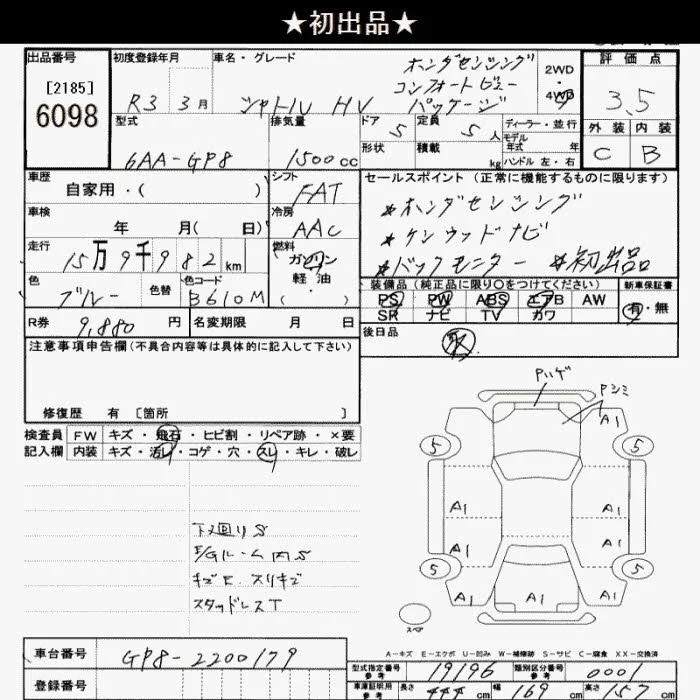 ★初出品★
出品番号 初度登録年月 車名・グレード ホンダセンシング 2WD 評価点
[2185] コンフォートビュー ・
6098 R3 3月 シャトル HV パッケージ 4WD 3.5
型式 排気量 ドア 定員 ディーラー・並行 外装 内装
6AA-GP8 1500cc 5 5人 モデル年式 年 C B
形状 積載 kg ハンドル 左・右
車歴 シフト セールスポイント(正常に機能するものに限ります)
自家用・( ) FAT ★ホンダセンシング
車検 冷房
年 月( 日) AAC ★ケンウッドナビ
走行 燃料
15万9千982km ガソリン ★バックモニター ★初出品
色 色替 色コード 軽油 装備品(純正品に限り〇をつけてください) 新車保証書
ブルー B610M ( ) PS PW ABS エアB AW 有・無
R券 9,880円 名変期限 月 日 SR ナビ TV カワ
注意事項申告欄(不具合内容等は具体的に記入して下さい) 後日品
修復歴 有 [箇所 ]
検査員 FW キズ・飛石・ヒビ割・リペア跡・×要
記入欄 内装 キズ・汚レ・コゲ・穴・スレ・キレ・破レ
Pハゲ
Pシミ
A1
5 5
A1 A1
A1 A1
5 5
A1 A1 A1
スペア
下廻りS
E/GルームS
キズE.スリキズ
スタッドレスT
A-キズ E-エクボ U-凹み W-補修跡 S-サビ C-腐食 XX-交換済
車台番号 GP8-2200179
型式指定番号 参考 19196 類別区分番号 参考 0001
登録番号
車庫証明用 参考 長さ 444cm 幅 169cm 高さ 157cm